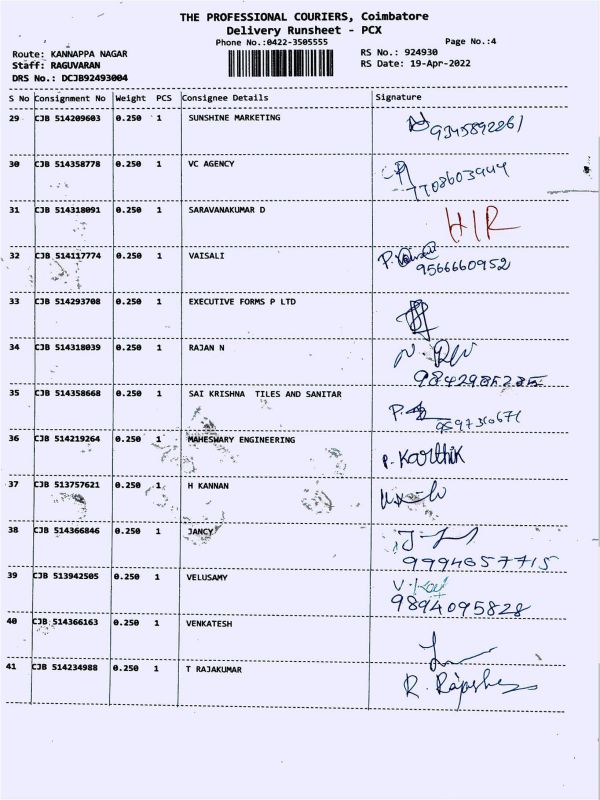 THE PROFESSIONAL COURIERS, Coimbatore
Delivery Runsheet - PCX
Phone No.:0422-3505555 Page No.:4
Route: KANNAPPA NAGAR RS No.: 924930
Staff: RAGUVARAN RS Date: 19-Apr-2022
DRS No.: DCJB92493004
S No Consignment No Weight PCS Consignee Details Signature
29 CJB 514209603 0.250 1 SUNSHINE MARKETING
30 CJB 514358778 0.250 1 VC AGENCY
7708603944
31 CJB 514318091 0.250 1 SARAVANAKUMAR D
H/R
32 CJB 514117774 0.250 1 VAISALI P.
9566660952
33 CJB 514293708 0.250 1 EXECUTIVE FORMS P LTD
34 CJB 514318039 0.250 1 RAJAN N
35 CJB 514358668 0.250 1 SAI KRISHNA TILES AND SANITAR
36 CJB 514219264 0.250 1 MAHESWARY ENGINEERING
P. Karthik
37 CJB 513757621 0.250 1 H KANNAN
38 CJB 514366846 0.250 1 JANCY
9994657715
39 CJB 513942505 0.250 1 VELUSAMY V.
9894095828
40 CJB 514366163 0.250 1 VENKATESH
41 CJB 514234988 0.250 1 T RAJAKUMAR
R.